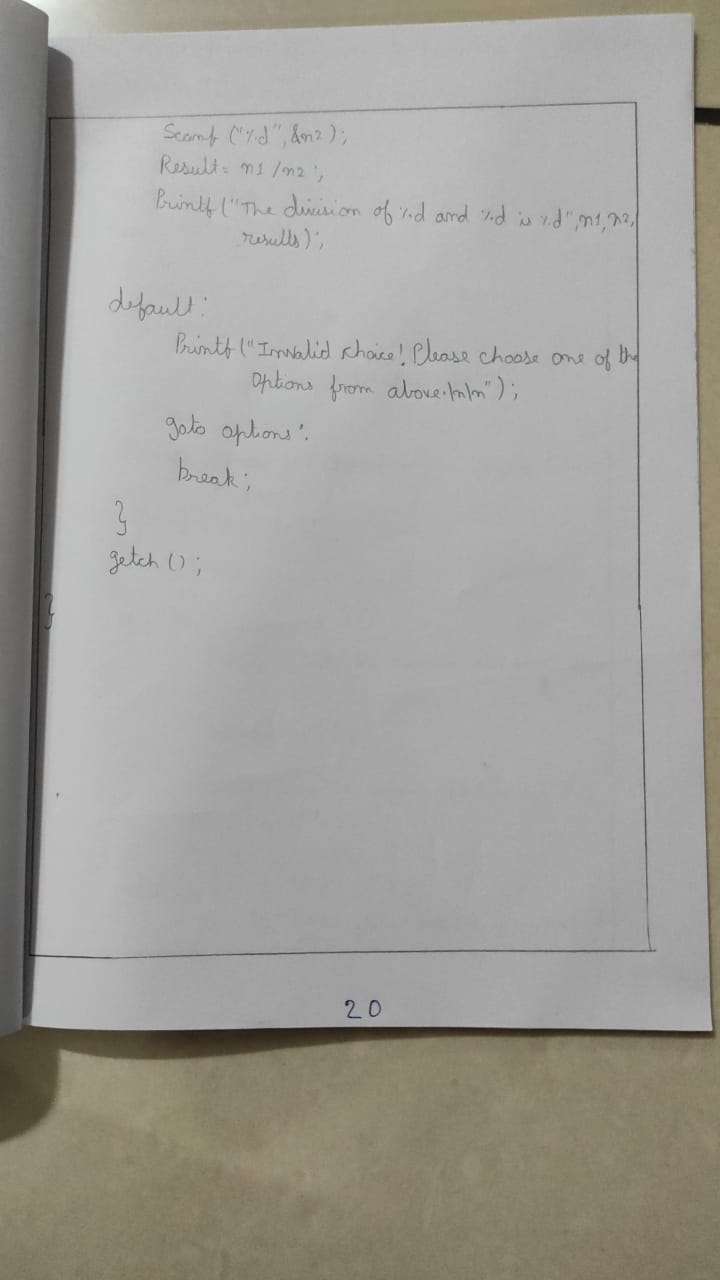 Scanf ("%d", &n2);
Result = n1 / n2 ;
Printf ("The division of %d and %d is %d", n1, n2,
results);
default:
Printf ("Invalid choice! Please choose one of the
Options from above.\n\n");
goto options:
break;
}
getch ();
}
20